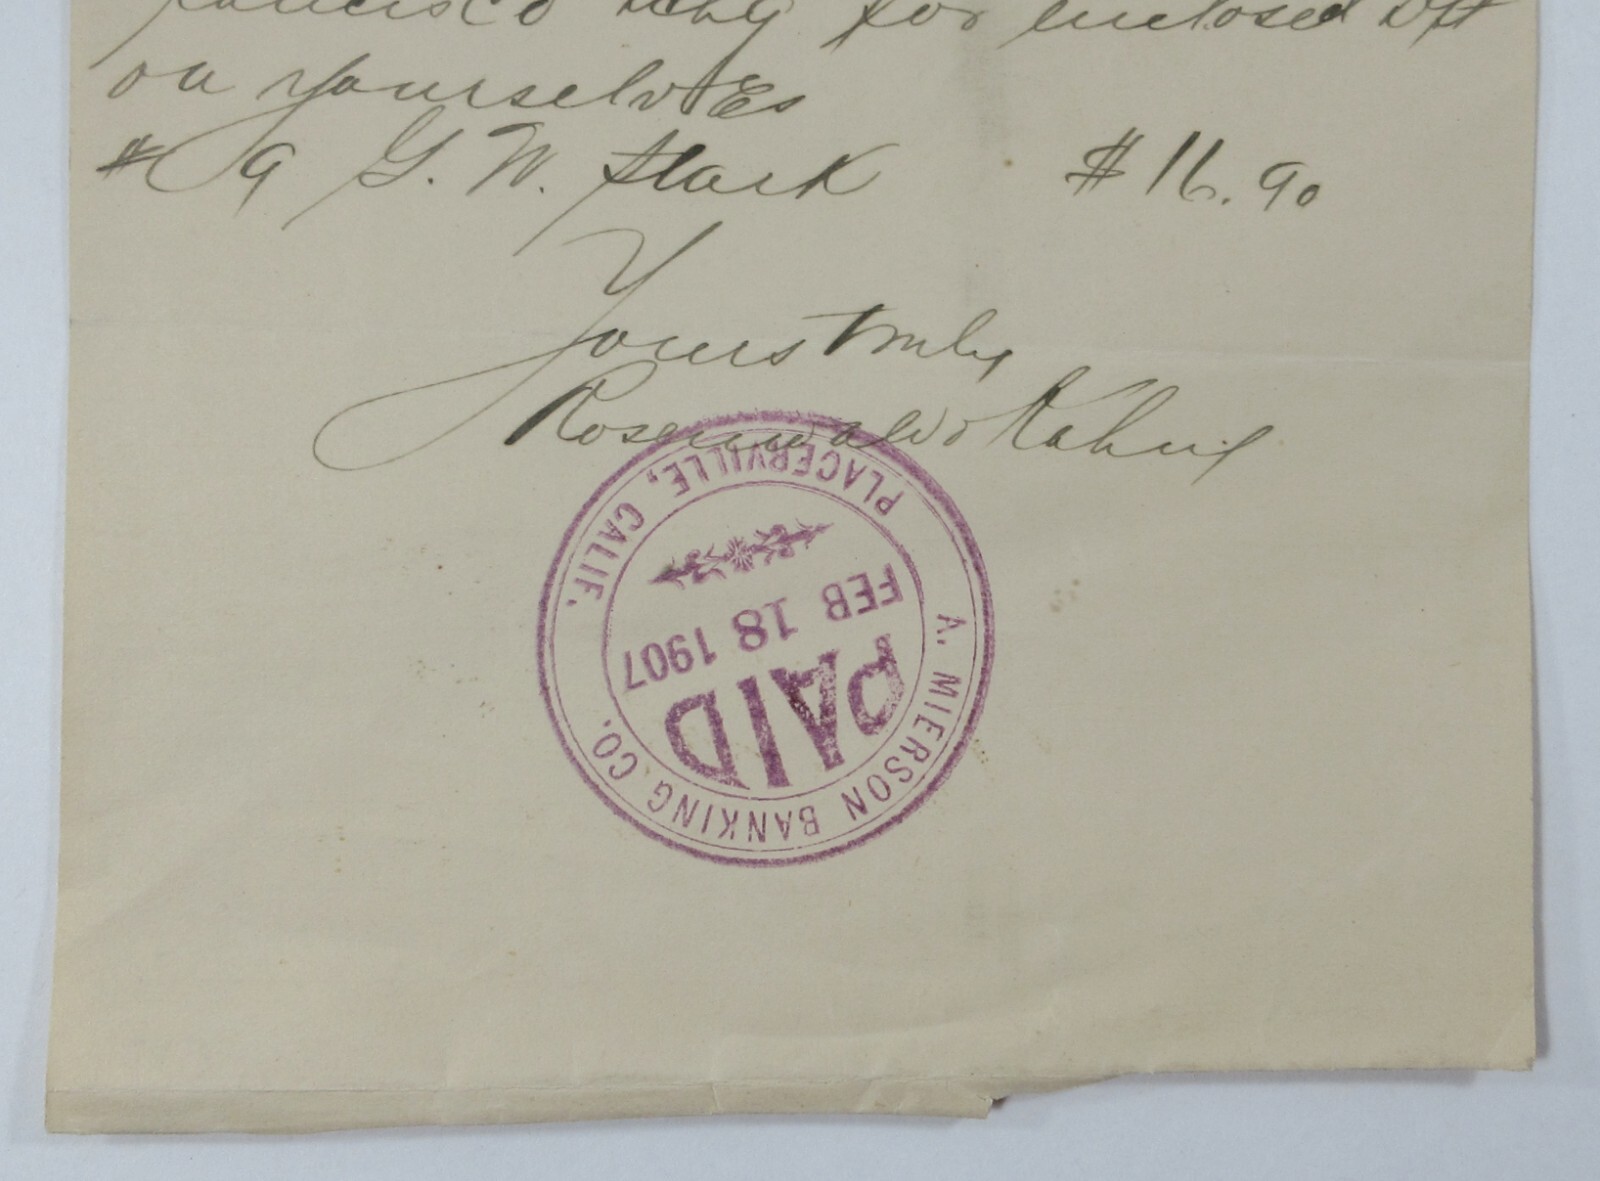 for enclosed dft
on yourselves
#9 G. W. Stark $16.90
Yours truly
Rosenwald & Kahn
A. MIERSON BANKING CO.
PAID
FEB 18 1907
PLACERVILLE, CALIF.